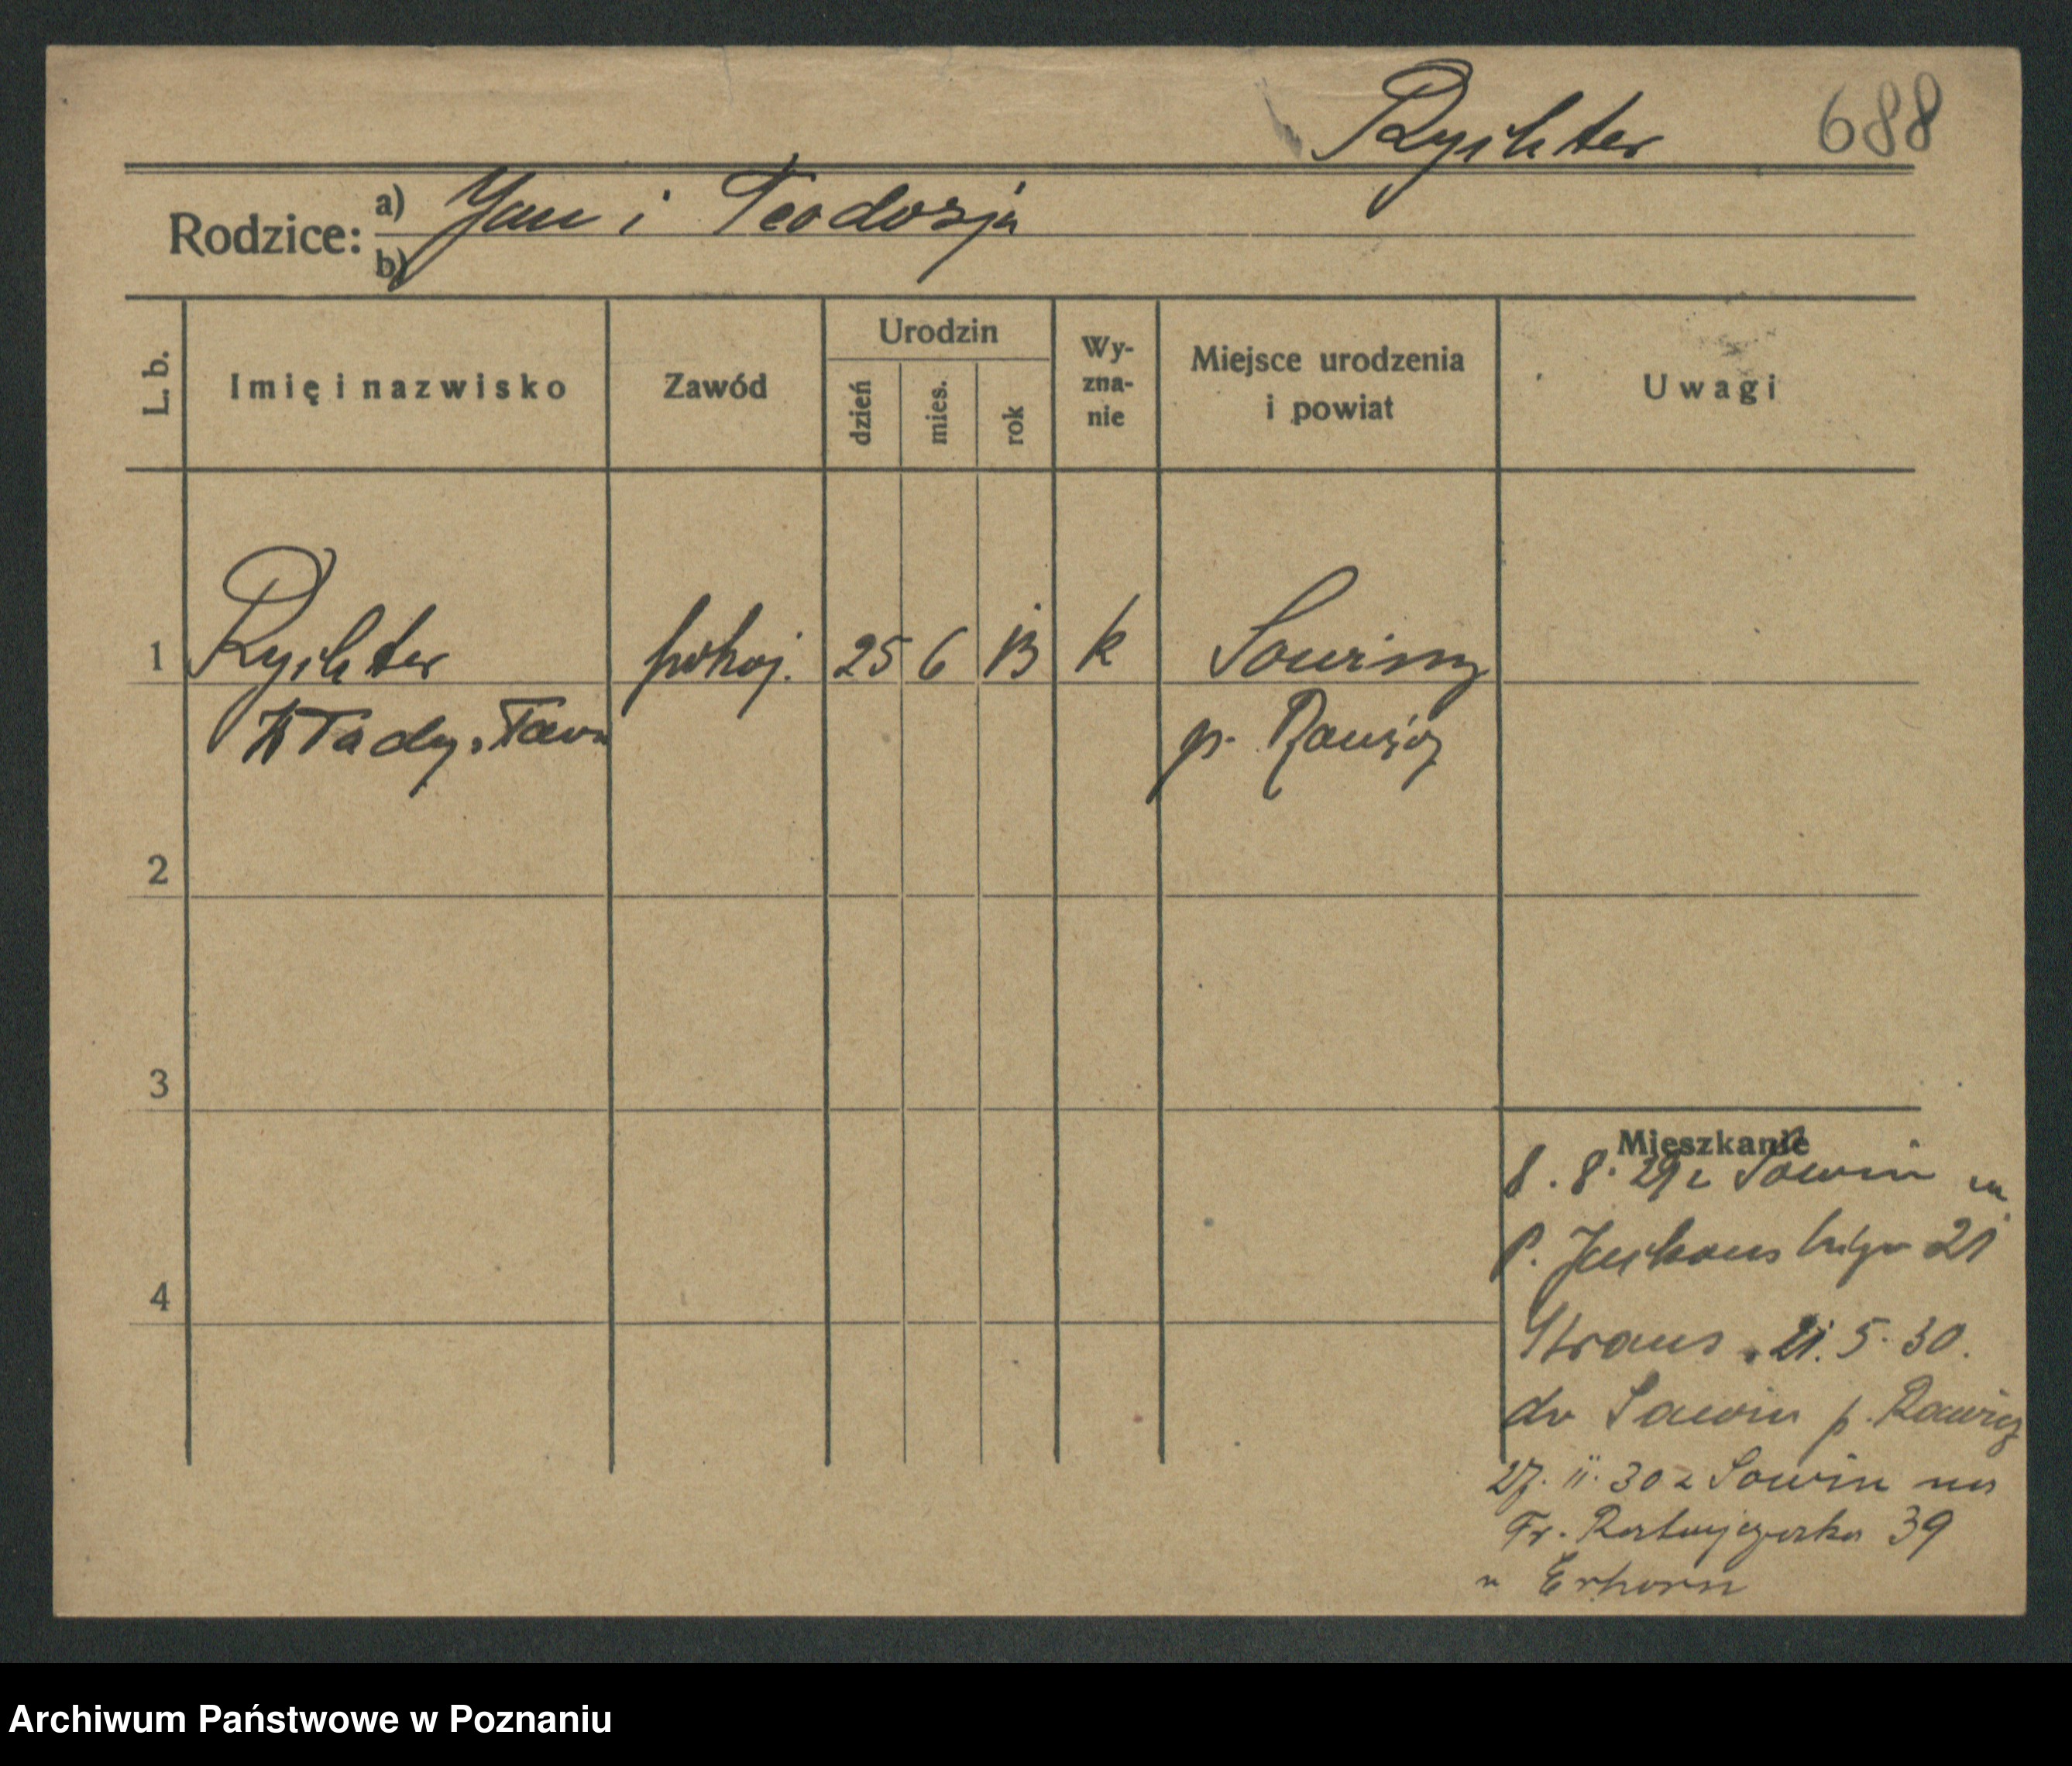 Rychter 688
Rodzice: a) Jan i Teodozja
b)
L. b. Imię i nazwisko Zawód Urodzin dzień mies. rok Wy-zna-nie Miejsce urodzenia i powiat Uwagi
1 Rychter pokoj. 25 6 13 k Sowiny
Włady. Tawa
p. Rawicz
2
3
4
Mieszkanie
8. 8. 29 z Sowin
P. 21
Straus 21. 5. 30.
do Sowin p. Rawicz
27. II. 30 z Sowin na
Fr. Ratajczaka 39
u Erhorn
Archiwum Państwowe w Poznaniu